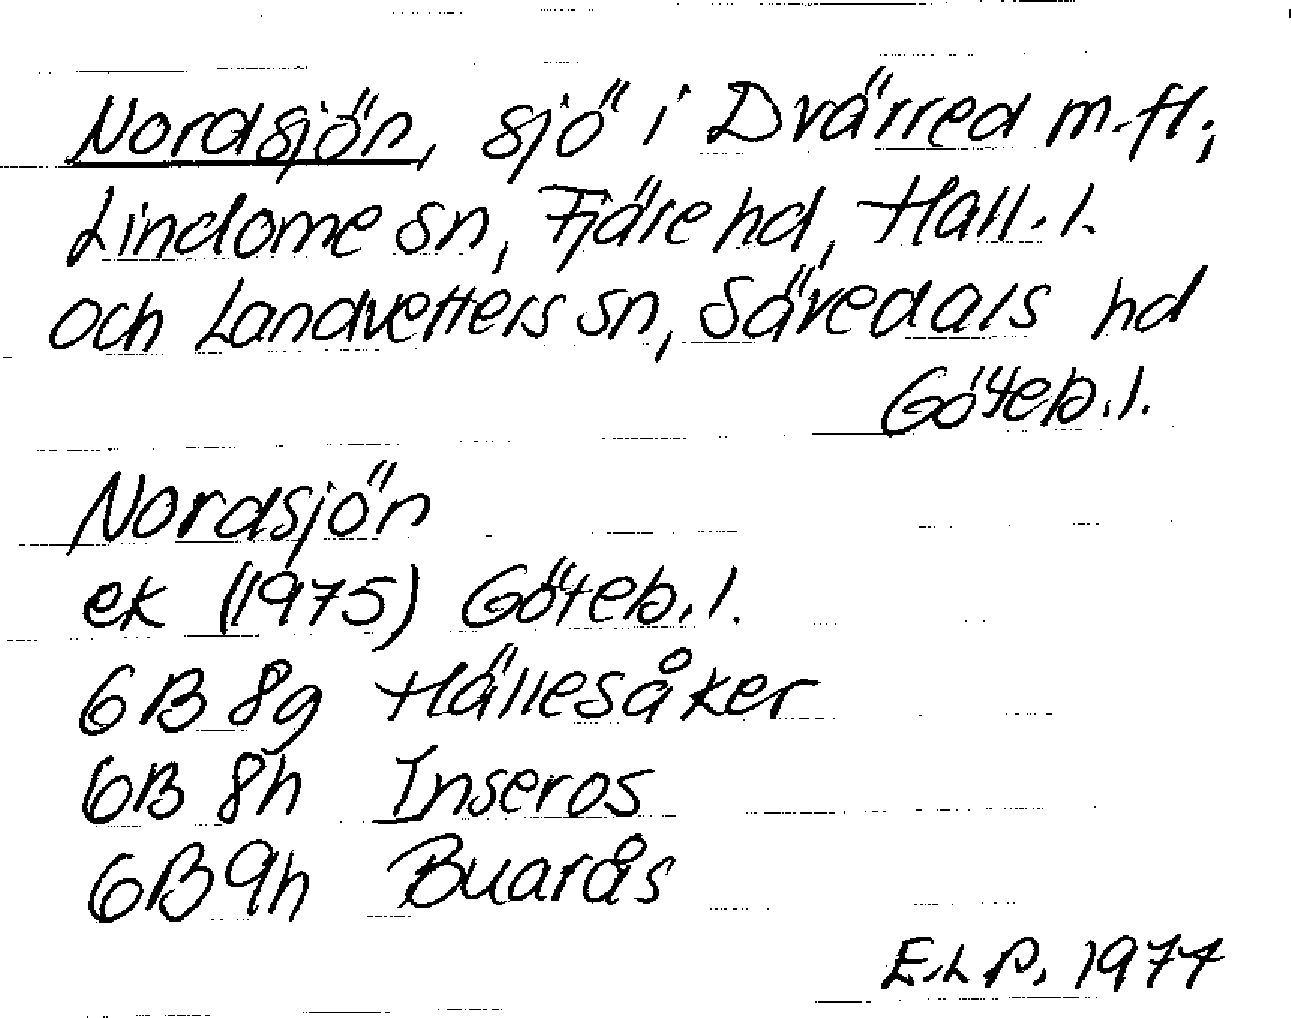 Nordsjön, sjö i Dvärred m.fl.;
Lindome sn, Fjäre hd, Hall.l.
och Landvetters sn, Sävedals hd
Göteb.l.
Nordsjön
ek (1975) Göteb.l.
6B 8g Hällesåker
6B 8h Inseros
6B 9h Buarås
E.L.P. 1977